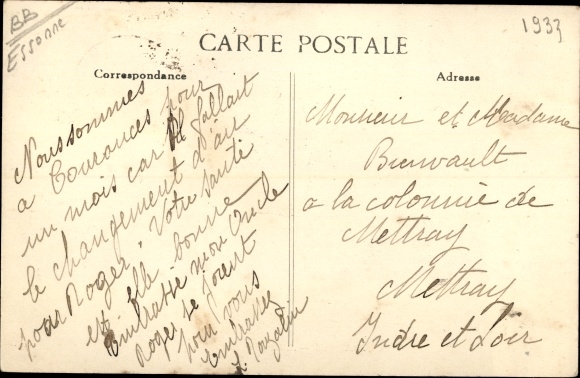 BB
Essonne
1933
CARTE POSTALE
Correspondance
Adresse
Nous sommes
a Courances pour
un mois car il fallait
le changement d'air
pour Roger, Votre santé
est elle bonne
Embrasse mon Oncle
Roger se joint
pour vous
Embrasser
Monsieur et Madame
a la colonnie de
Mettray
Mettray
Indre et Loir